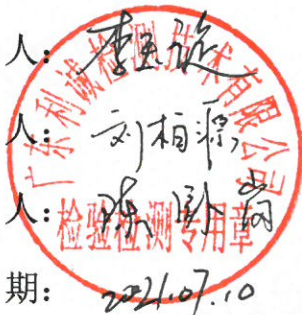 人：
人：刘柏源
人：
期：2021.07.10
广东利诚检测技术有限公司
检验检测专用章